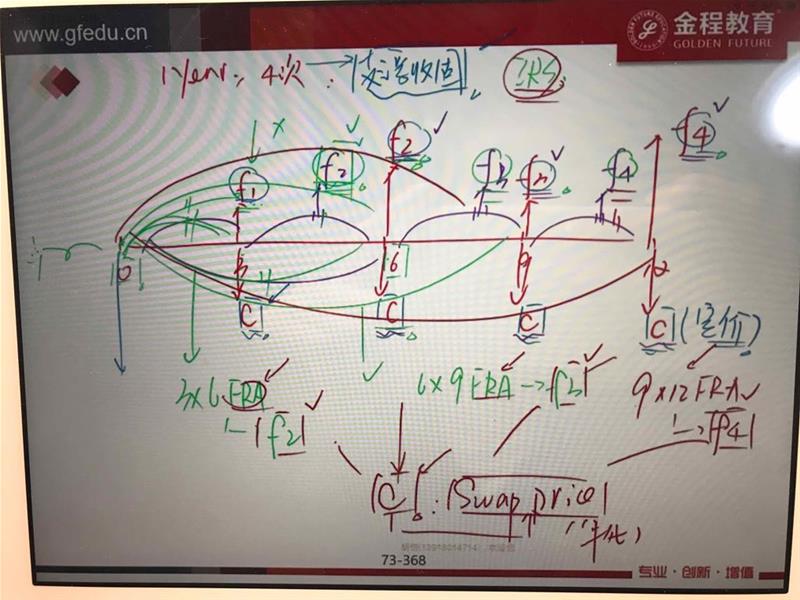 www.gfedu.cn
金程教育
GOLDEN FUTURE
1 year, 4次 → 支浮收固 IRS
f1 f2 f2 f3 f3 f4 f4
0 3 6 9 12
C C C C (定价)
3x6 FRA
→ f2
6x9 FRA → f3
9x12 FRA
→ f4
C : Swap price
(年化)
73-368
专业·创新·增值